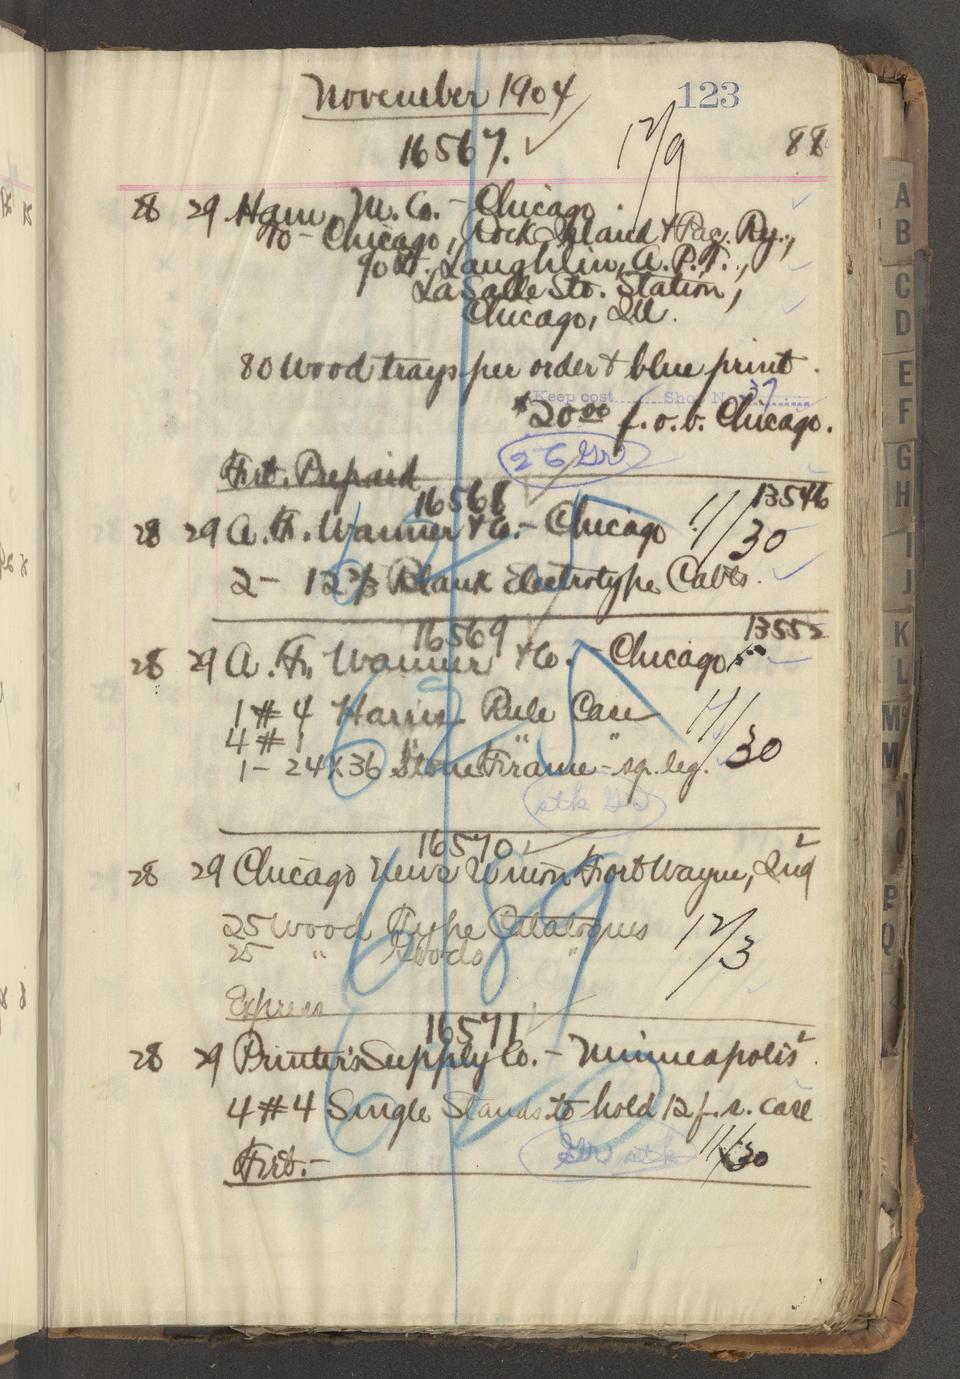 November 1904 123
16567. 12/9 88
28 29 Ham. M. Co. - Chicago.
To - Chicago, Rock Island & Pac. Ry.,
% Laughlin, A. P. T.,
LaSalle Sta. Station,
Chicago, Ill.
80 Wood trays per order & blue print.
Keep cost Shop N 37
$20.00 f.o.b. Chicago.
26 Gr
Frt. Prepaid
16568 13546
28 29 A. F. Wanner & Co. - Chicago 11/30
2 - 12 2/3 Blank Electrotype Cabts.
16569 13552
28 29 A. F. Wanner & Co. - Chicago
1 # 4 Harris Rule Case 11/30
4 # 1 " " "
1 - 24 X 36 Stone Frame - sq. leg.
stk Gr
16570
28 29 Chicago News Union Fort Wayne, Ind
25 Wood Type Catalogues 12/3
25 " Goods "
Express
689
16571
28 29 Printer's Supply Co. - Minneapolis.
4 # 4 Single Stands to hold 12 f. s. case
Frt. - Gr stk 11/30
A
B
C
D
E
F
G
H
I
J
K
L
M
M
N
O
P
Q